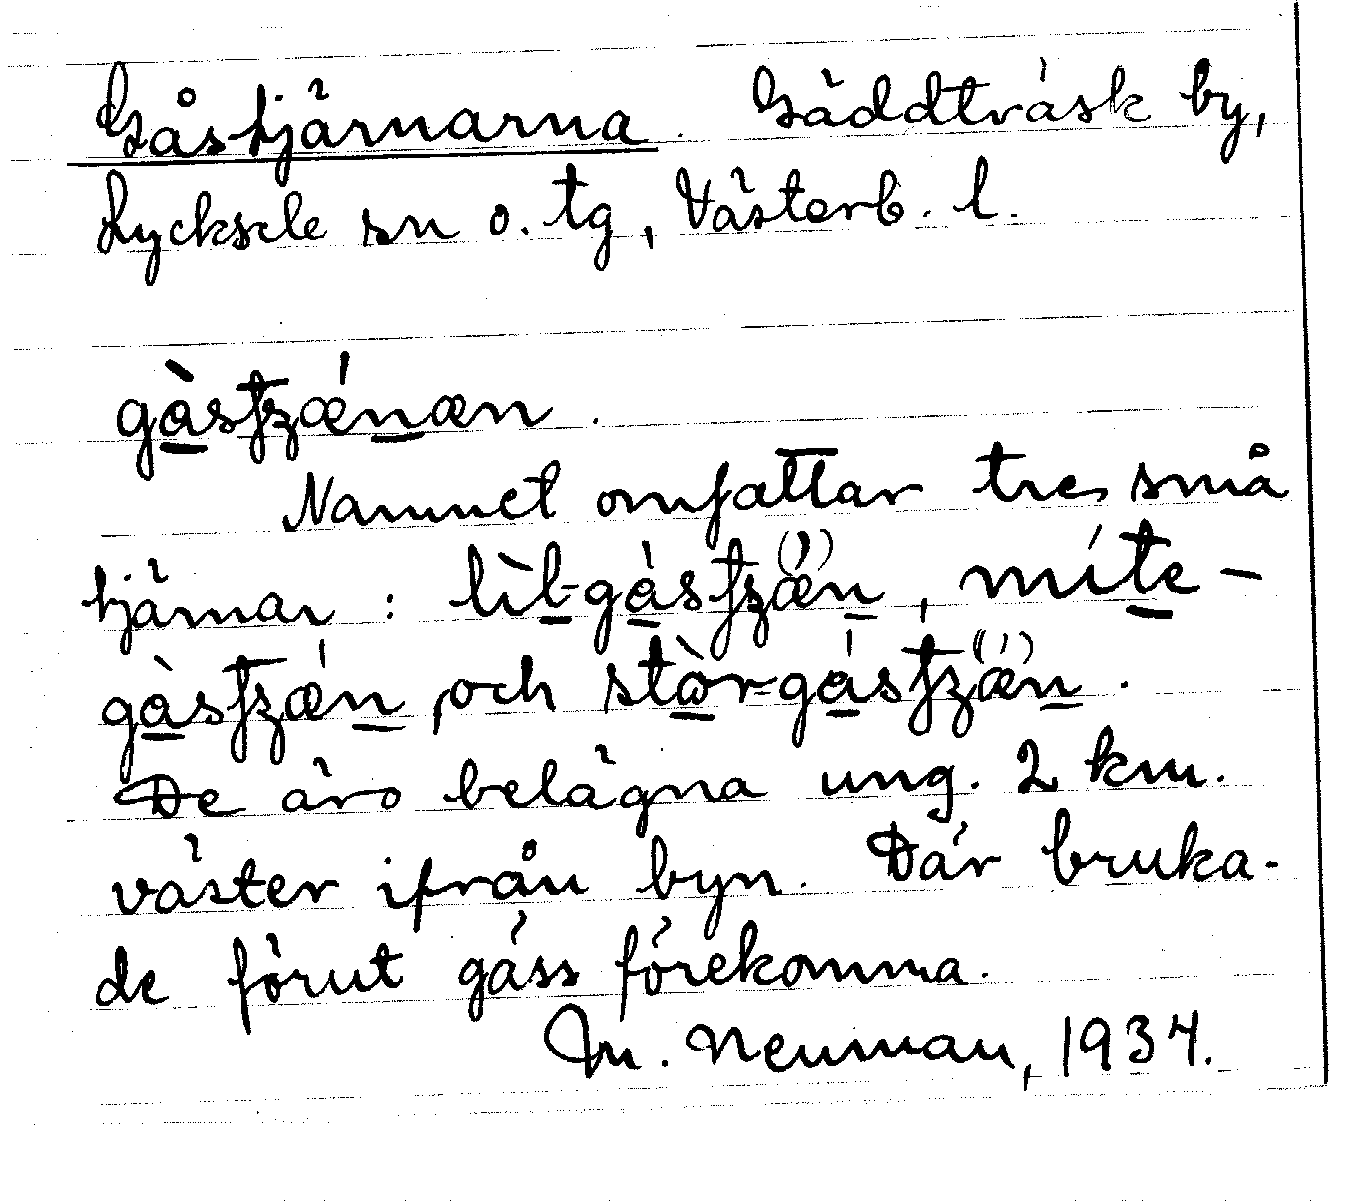 Gåstjärnarna. Gäddträsk by,
Lycksele sn o. tg, Västerb. l.
gàstʒǽnæn.
Namnet omfattar tre små
tjärnar: lìl-gástʒæn, míte-
gàstʒǽn, och stòr-gástʒæn.
De äro belägna ung. 2 km.
väster ifrån byn. Där bruka-
de förut gäss förekomma.
M. Neuman, 1934.